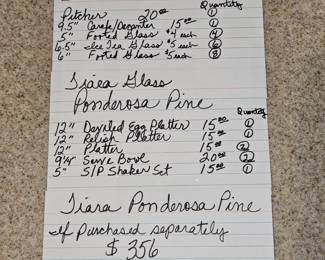 Quantity
Pitcher 20⁰⁰ ①
9.5" Carafe/Decanter 15⁰⁰ ①
5" Footed Glass $4 each ④
6.5" Ice Tea Glass $5 each ⑥
6" Footed Glass $5 each ⑧
Tiara Glass
Ponderosa Pine
Quantity
12" Deviled Egg Platter 15⁰⁰ ①
12" Relish Platter 15⁰⁰ ①
12" Platter 15⁰⁰ ②
9¼" Serve Bowl 20⁰⁰ ②
5" S/P Shaker Set 15⁰⁰ ①
Tiara Ponderosa Pine
If Purchased separately
$356